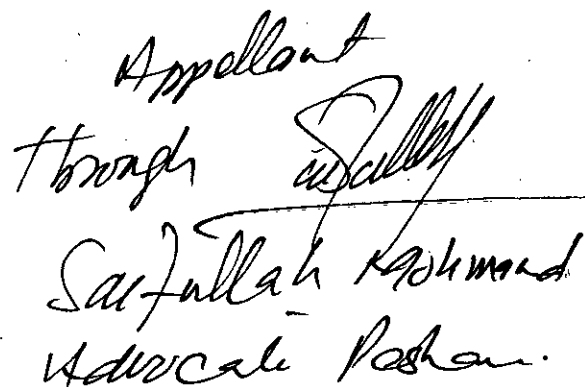 Appellant
through
Saifullah Mohmand
Advocate Peshawar.